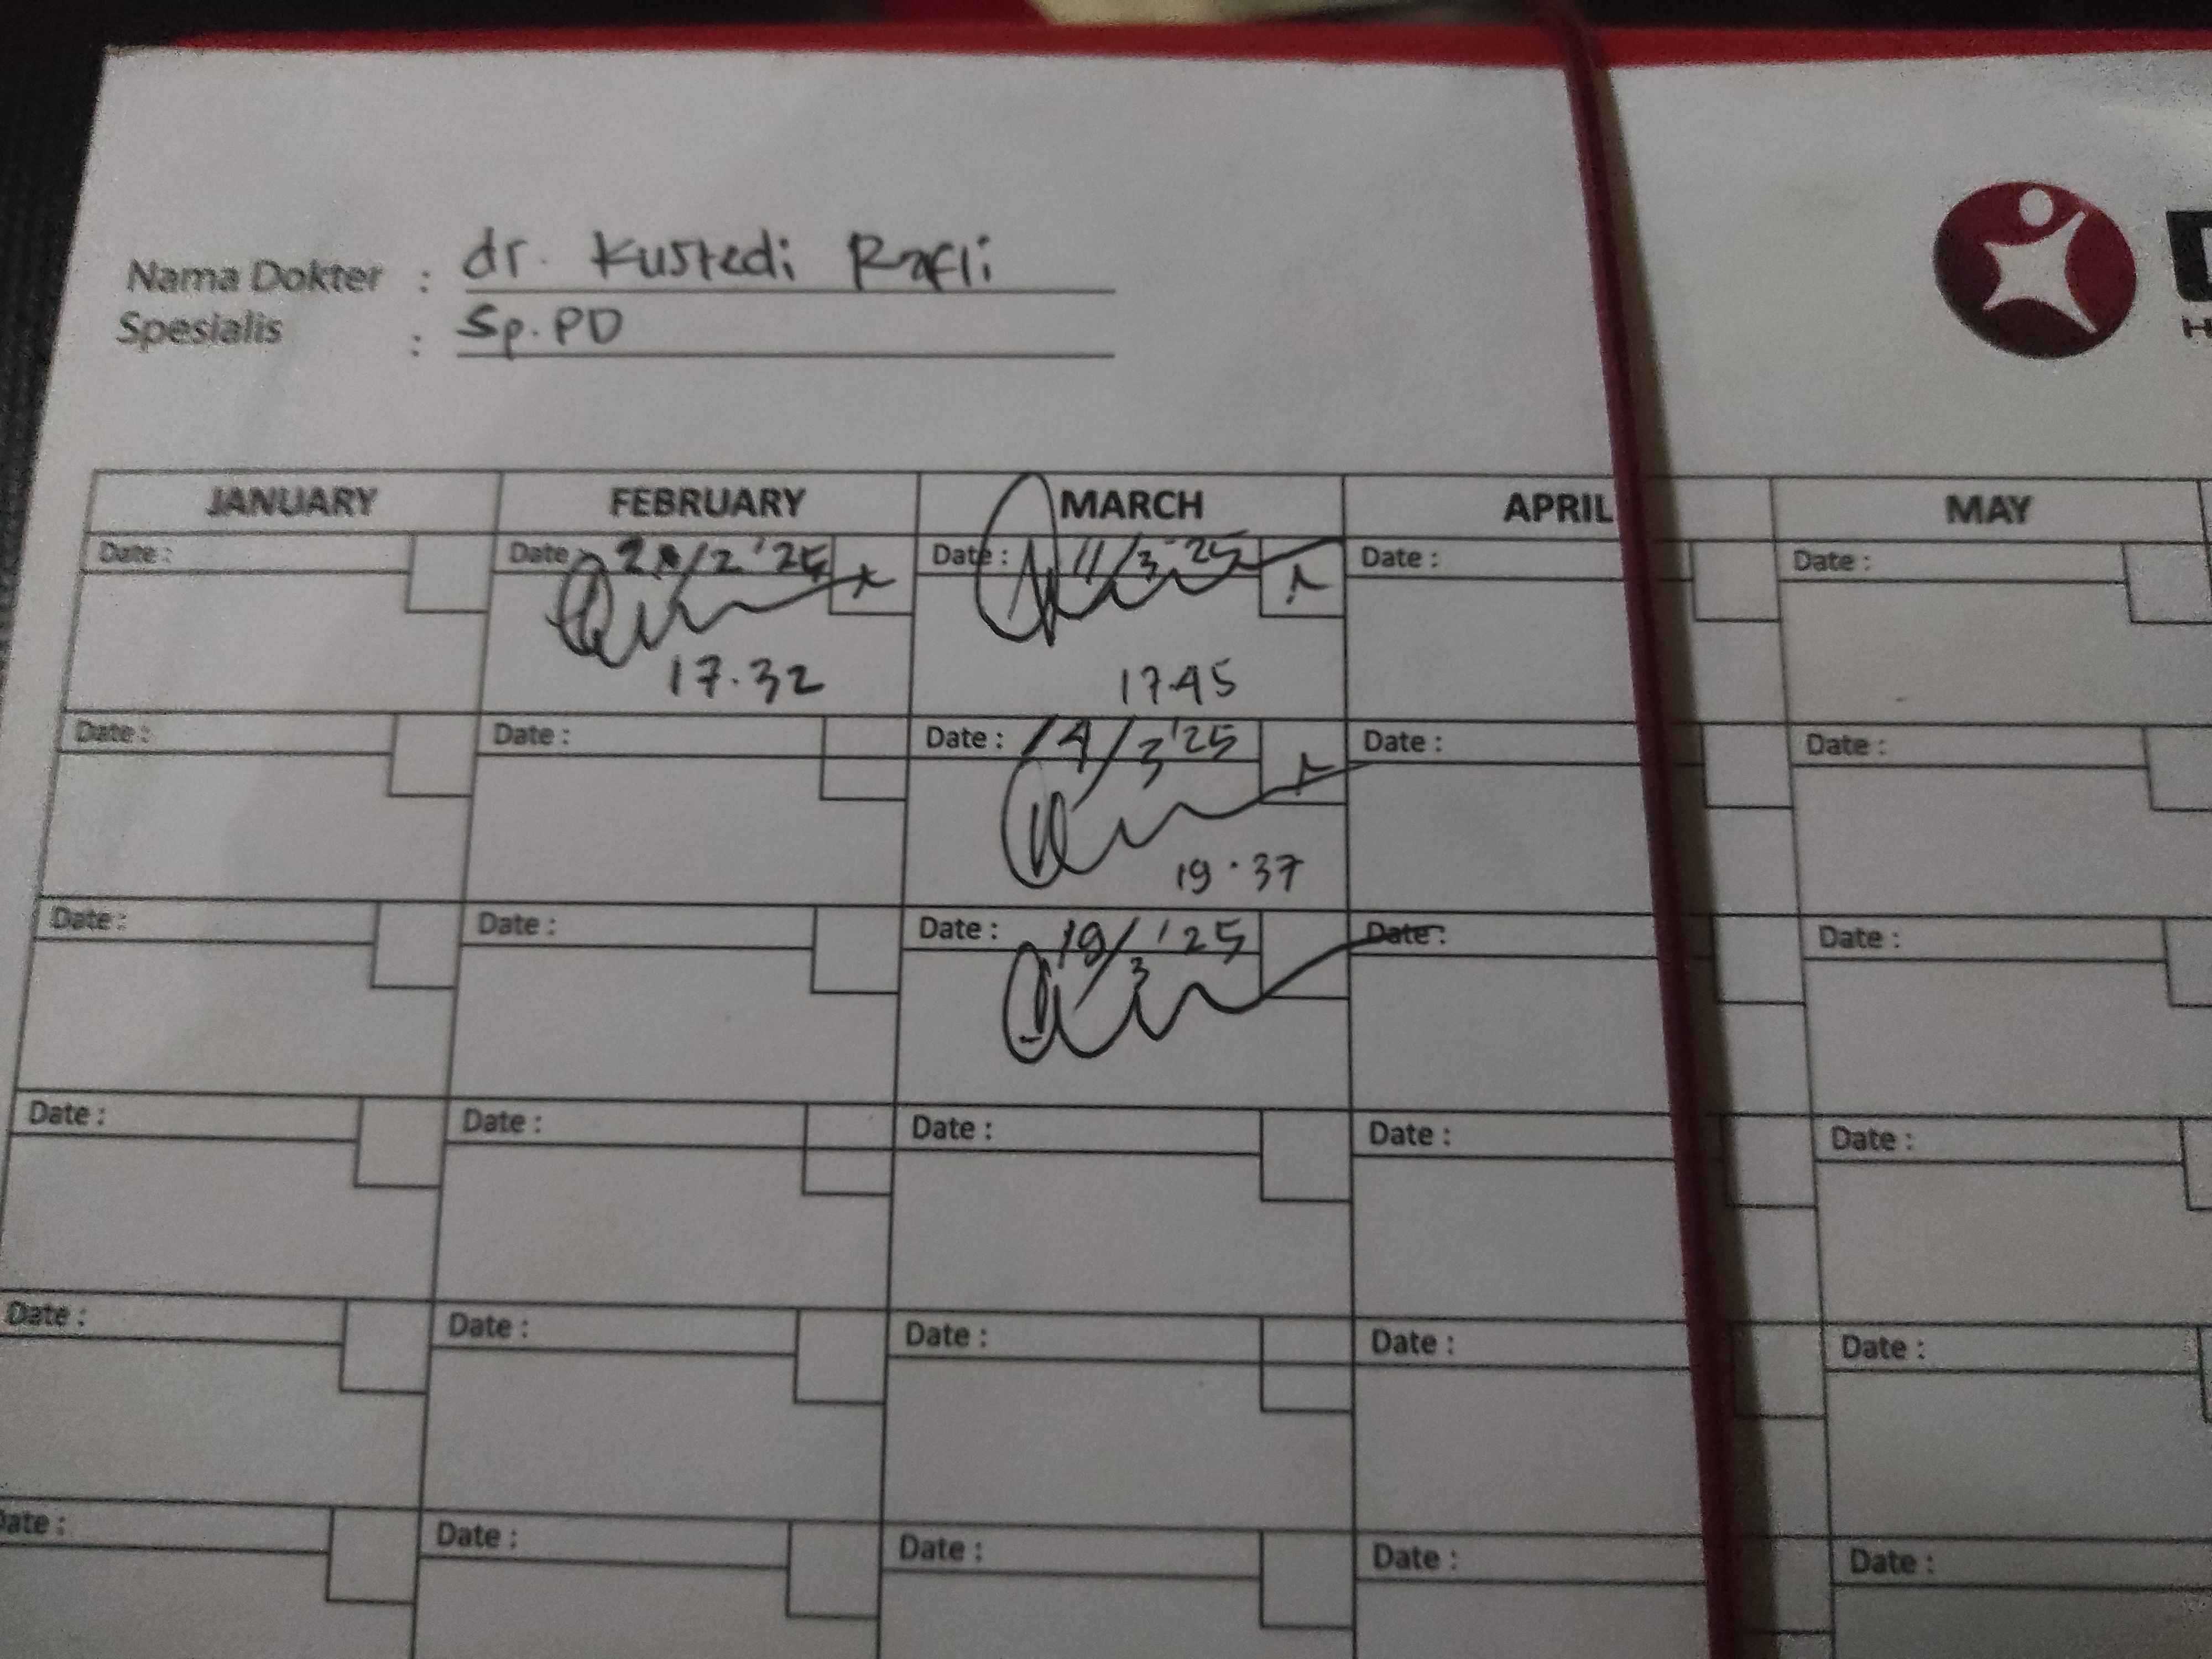 Nama Dokter : dr. Kustedi Rafli
Spesialis : Sp.PD
JANUARY FEBRUARY MARCH APRIL MAY
Date : Date /2 '25 Date : 11/3 '25 Date : Date :
17.32 17.45
Date : Date : Date : 14/3 '25 Date : Date :
19.37
Date : Date : Date : 19/3 '25 Date : Date :
Date : Date : Date : Date : Date :
Date : Date : Date : Date : Date :
Date : Date : Date : Date : Date :